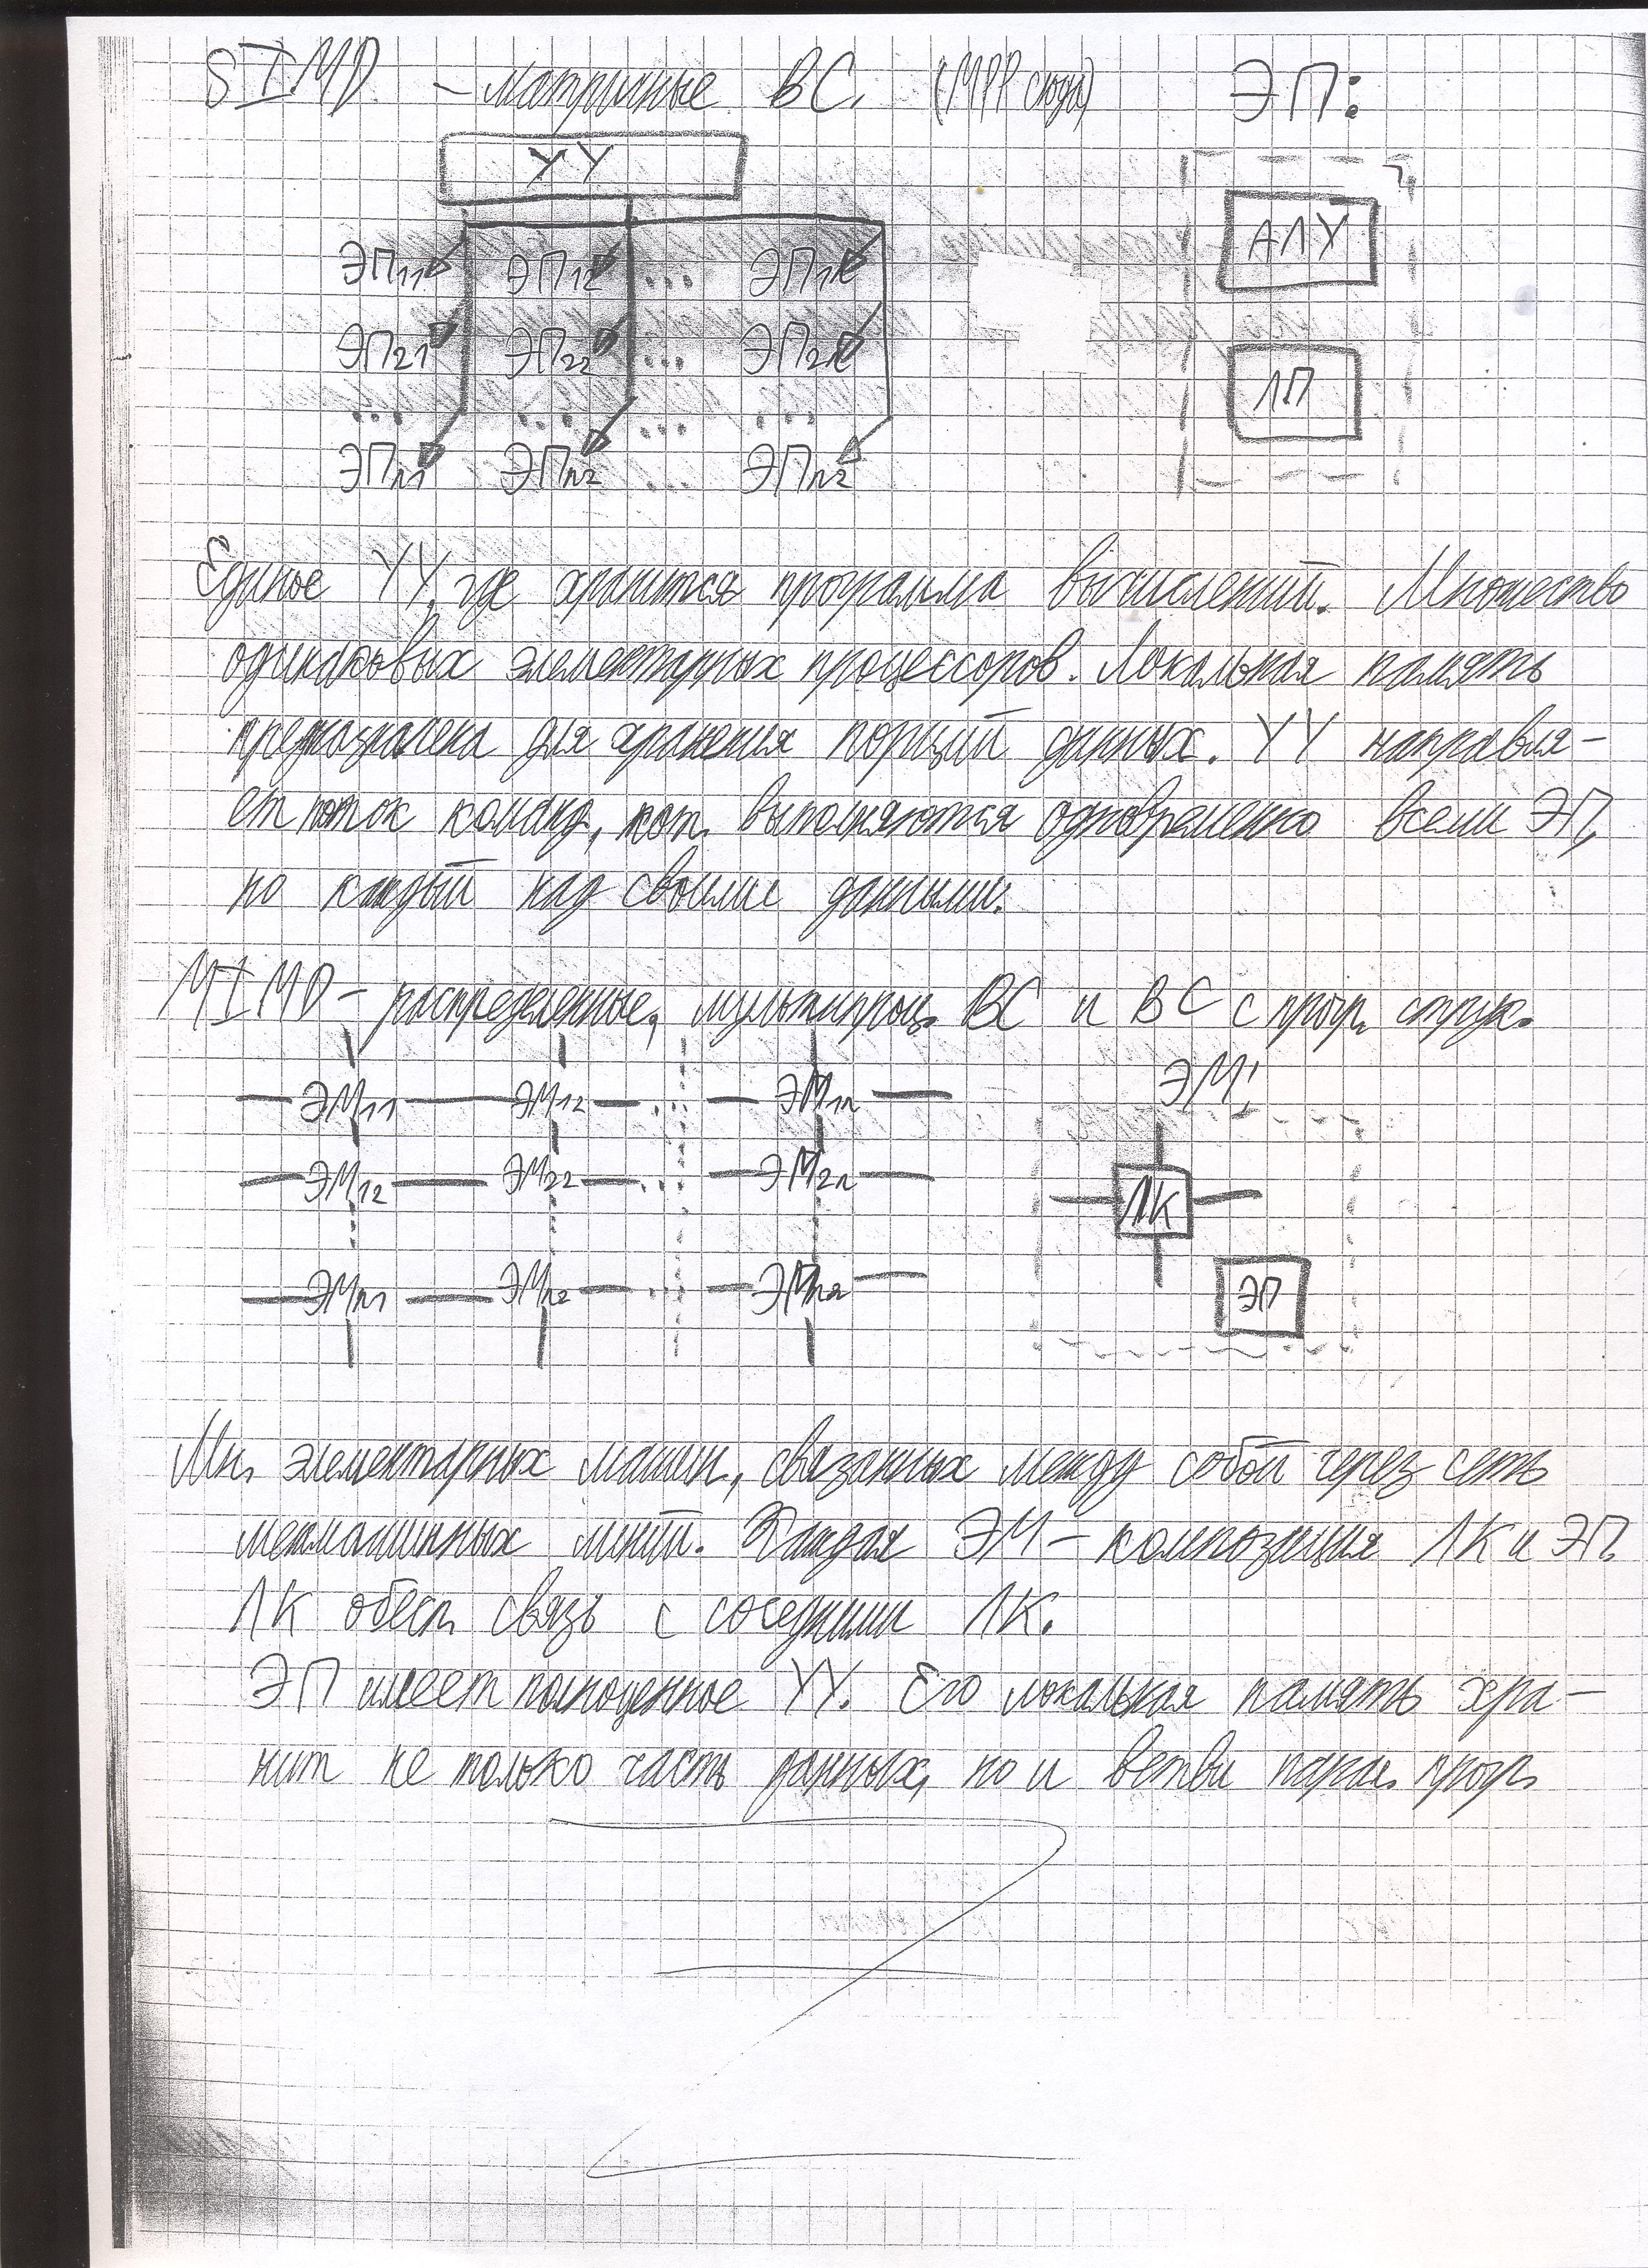 SIMD – матричные ВС. (МРР сюда) ЭП:
УУ
АЛУ
ЭП11 ЭП12 ... ЭП1k
ЭП21 ЭП22 ... ЭП2k
... ... ... ...
ЛП
ЭПn1 ЭПn2 ... ЭПn2
Единое УУ, где хранится программа вычислений. Множество
одинаковых элементарных процессоров. Локальная память
предназначена для хранения порций данных. УУ направля-
ет поток команд, кот. выполняются одновременно всеми ЭП,
но каждый над своими данными.
MIMD – распределенные, мультипроц. ВС и ВС с прогр. струк.
ЭМ:
ЭМ11 ЭМ12 ... ЭМ1n
ЭМ12 ЭМ22 ... ЭМ2n
ЛК
ЭМn1 ЭМn2 ... ЭМn2
ЭП
Мн. элементарных машин, связанных между собой через сеть
межмашинных линий. Каждая ЭМ – композиция ЛК и ЭП.
ЛК обесп. связь с соседними ЛК.
ЭП имеет полноценное УУ. Его локальная память хра-
нит не только часть данных, но и ветви парал. прогр.